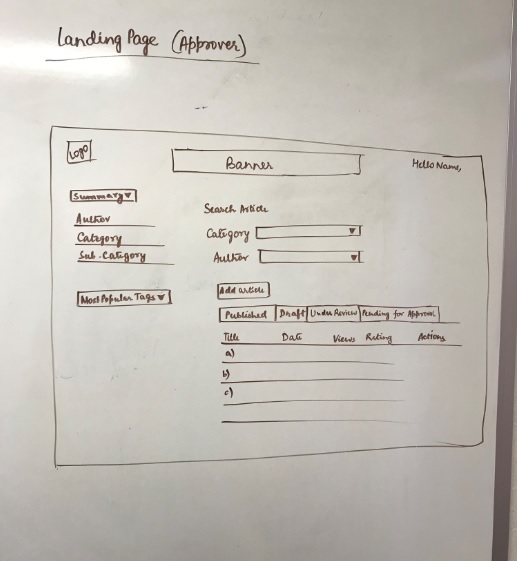 Landing Page (Approver)
Logo
Banner
Hello Name,
Summary
Author
Category
Sub-Category
Most Popular Tags
Search Article
Category
Author
Add article
Published Draft Under Review Pending for Approval
Title Date Views Rating Actions
a)
b)
c)